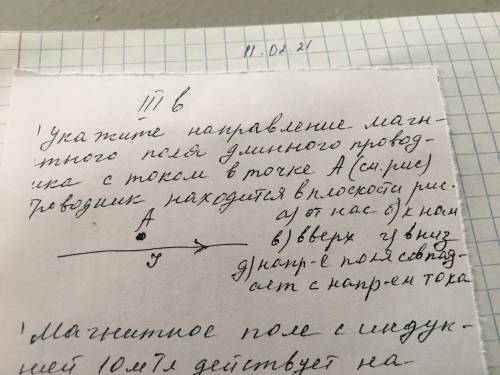 11.02.21
III в
1 Укажите направление магн-
тного поля длинного провод-
ика с током в точке А (см. рис)
Проводник находится в плоскости рис.
А
а) от нас б) к нам
в) вверх г) вниз
I
д) напр-е поля совпад-
ает с напр-ем тока
1 Магнитное поле с индук-
цией 10 мТл действует на-